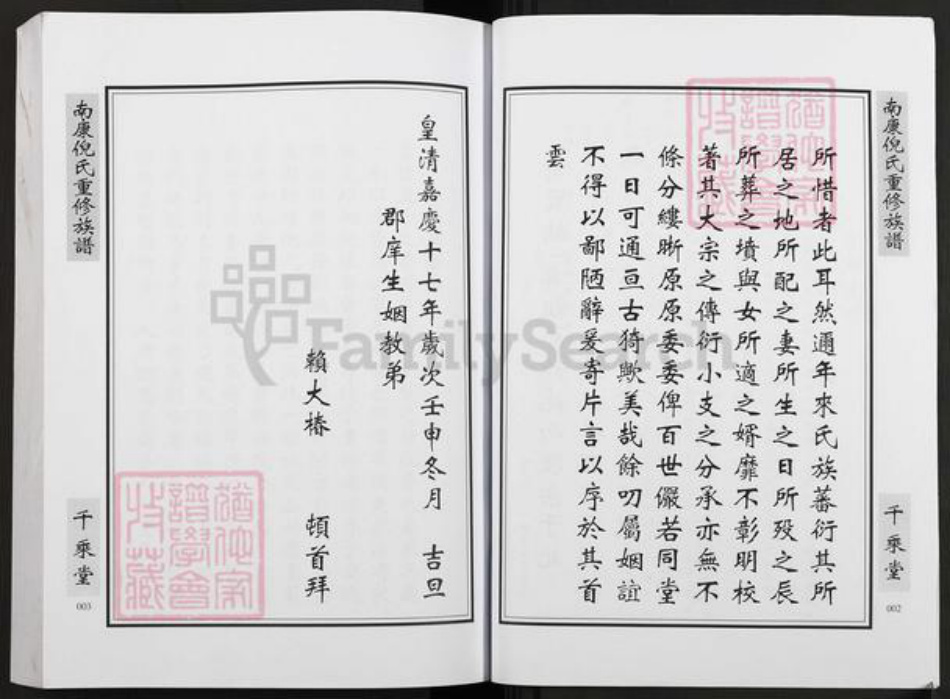 南康倪氏重修族譜
所惜者此耳然邇年來氏族蕃衍其所
居之地所配之妻所生之日所歿之辰
所葬之墳與女所適之婿靡不彰明校
著其大宗之傳衍小支之分承亦無不
條分縷晰原原委委俾百世儼若同堂
一日可通亘古猗歟美哉餘叨屬姻誼
不得以鄙陋辭爰寄片言以序於其首
雲
千乘堂
002
皇清嘉慶十七年歲次壬申冬月 吉旦
郡庠生姻教弟
賴大椿 頓首拜
南康倪氏重修族譜
千乘堂
003
FamilySearch